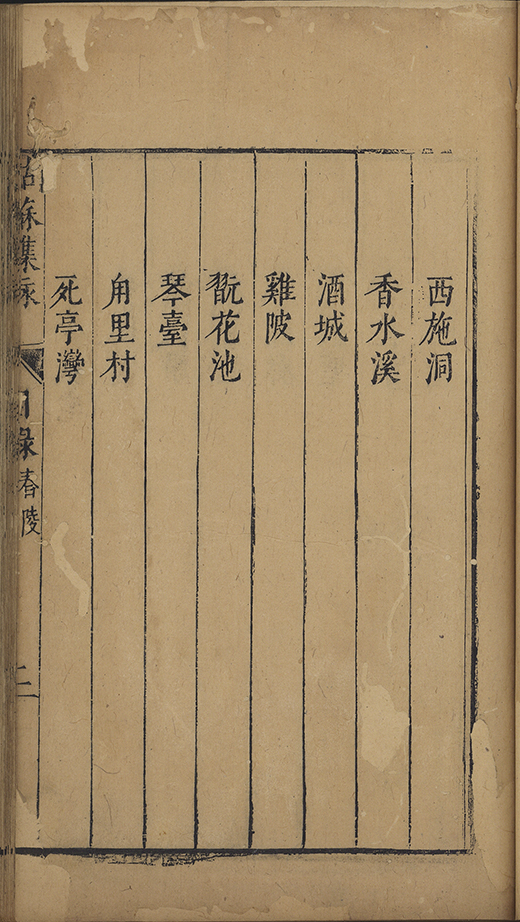 西施洞
香水溪
酒城
雞陂
翫花池
琴臺
甪里村
死亭灣
姑蘇集詠
目錄 春陵
二